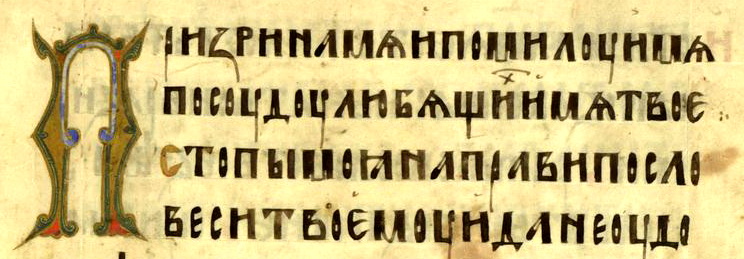 Призринамѧипомилоуимѧ
посоудоулюбѧщиⷯимѧтвоє :
стопымоꙗнаправипосло
веситвоемоуиданеоудо